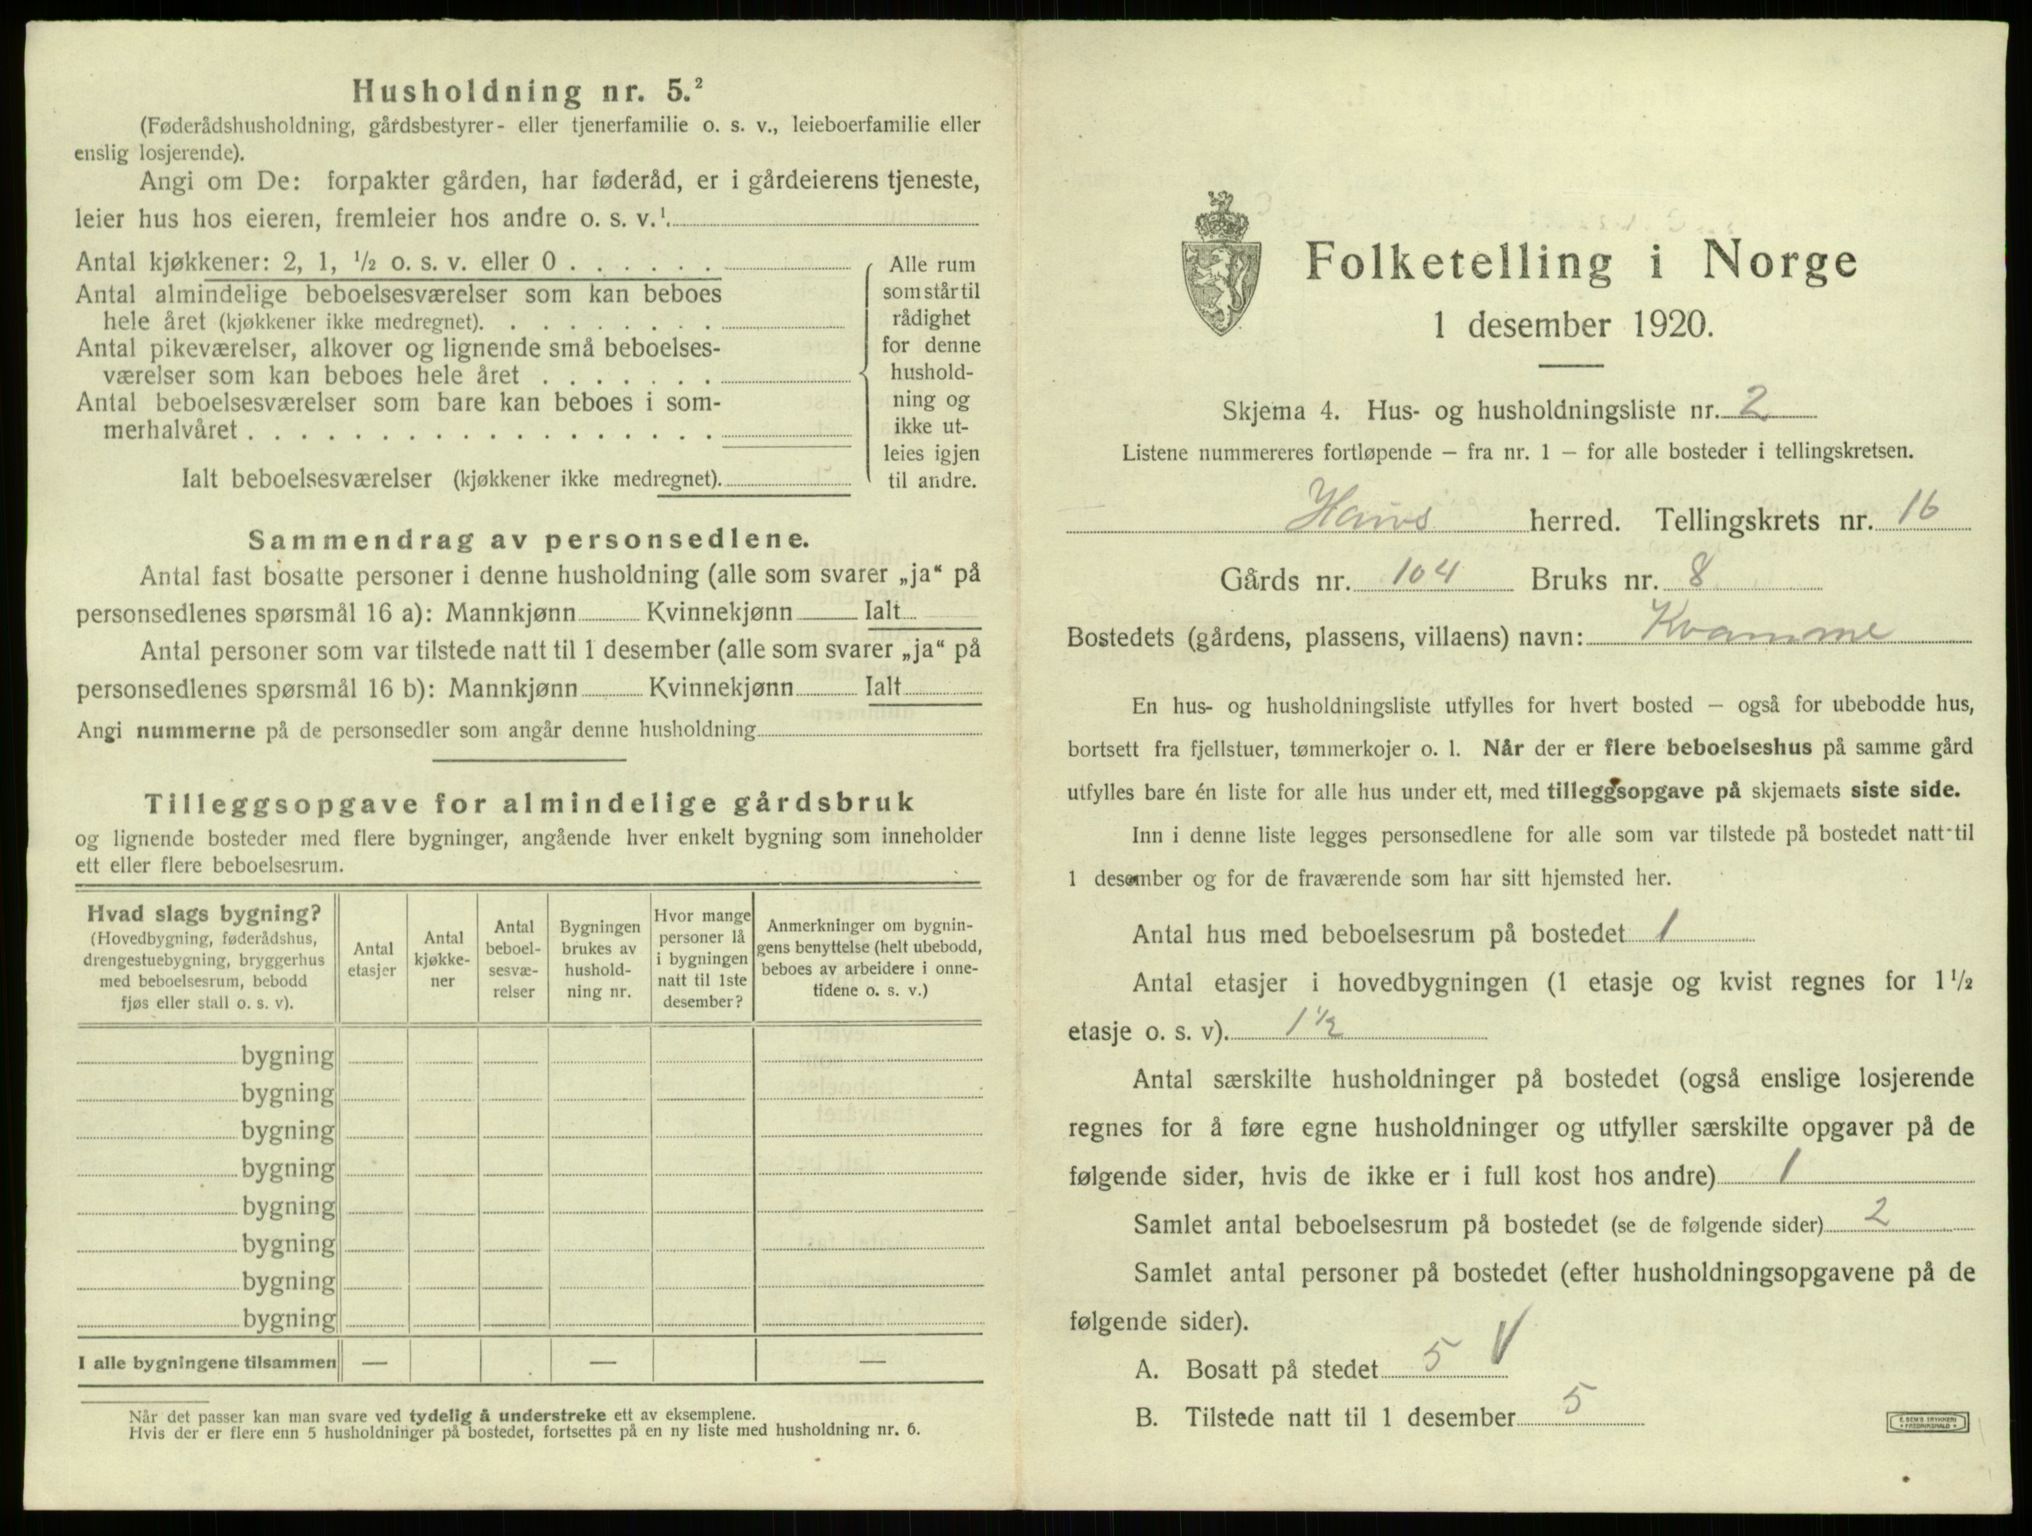 Husholdning nr. 5.²
(Føderådshusholdning, gårdsbestyrer- eller tjenerfamilie o. s. v., leieboerfamilie eller
enslig losjerende).
Angi om De: forpakter gården, har føderåd, er i gårdeierens tjeneste,
leier hus hos eieren, fremleier hos andre o. s. v.¹.
Antal kjøkkener: 2, 1, ½ o. s. v. eller 0 . . . . . .
Antal almindelige beboelsesværelser som kan beboes
hele året (kjøkkener ikke medregnet). . . . . . . . .
Antal pikeværelser, alkover og lignende små beboelses-
værelser som kan beboes hele året . . . . . . .
Antal beboelsesværelser som bare kan beboes i som-
merhalvåret . . . . . . . . . . . . . . . . . .
Ialt beboelsesværelser (kjøkkener ikke medregnet).
Alle rum
som står til
rådighet
for denne
hushold-
ning og
ikke ut-
leies igjen
til andre.
Sammendrag av personsedlene.
Antal fast bosatte personer i denne husholdning (alle som svarer „ja“ på
personsedlenes spørsmål 16 a): Mannkjønn Kvinnekjønn Ialt
Antal personer som var tilstede natt til 1 desember (alle som svarer „ja“ på
personsedlenes spørsmål 16 b): Mannkjønn Kvinnekjønn Ialt
Angi nummerne på de personsedler som angår denne husholdning
Tilleggsopgave for almindelige gårdsbruk
og lignende bosteder med flere bygninger, angående hver enkelt bygning som inneholder
ett eller flere beboelsesrum.
Hvad slags bygning?
(Hovedbygning, føderådshus,
drengestuebygning, bryggerhus
med beboelsesrum, bebodd
fjøs eller stall o. s. v).
Antal
etasjer
Antal
kjøkke-
ner
Antal
beboel-
sesvæ-
relser
Bygningen
brukes av
hushold-
ning nr.
Hvor mange
personer lå
i bygningen
natt til 1ste
desember?
Anmerkninger om bygnin-
gens benyttelse (helt ubebodd,
beboes av arbeidere i onne-
tidene o. s. v.)
bygning
bygning
bygning
bygning
bygning
bygning
bygning
bygning
I alle bygningene tilsammen — — —
Når det passer kan man svare ved tydelig å understreke ett av eksemplene.
Hvis der er flere enn 5 husholdninger på bostedet, fortsettes på en ny liste med husholdning nr. 6.
Folketelling i Norge
1 desember 1920.
Skjema 4. Hus- og husholdningsliste nr. 2
Listene nummereres fortløpende – fra nr. 1 – for alle bosteder i tellingskretsen.
Haus herred. Tellingskrets nr. 16
Gårds nr. 104 Bruks nr. 8
Bostedets (gårdens, plassens, villaens) navn: Kvamme
En hus- og husholdningsliste utfylles for hvert bosted – også for ubebodde hus,
bortsett fra fjellstuer, tømmerkojer o. l. Når der er flere beboelseshus på samme gård
utfylles bare én liste for alle hus under ett, med tilleggsopgave på skjemaets siste side.
Inn i denne liste legges personsedlene for alle som var tilstede på bostedet natt til
1 desember og for de fraværende som har sitt hjemsted her.
Antal hus med beboelsesrum på bostedet 1
Antal etasjer i hovedbygningen (1 etasje og kvist regnes for 1½
etasje o. s. v). 1½
Antal særskilte husholdninger på bostedet (også enslige losjerende
regnes for å føre egne husholdninger og utfyller særskilte opgaver på de
følgende sider, hvis de ikke er i full kost hos andre) 1
Samlet antal beboelsesrum på bostedet (se de følgende sider) 2
Samlet antal personer på bostedet (efter husholdningsopgavene på de
følgende sider).
A. Bosatt på stedet 5 V
B. Tilstede natt til 1 desember 5
E. SEM'S TRYKKERI
FREDRIKSHALD